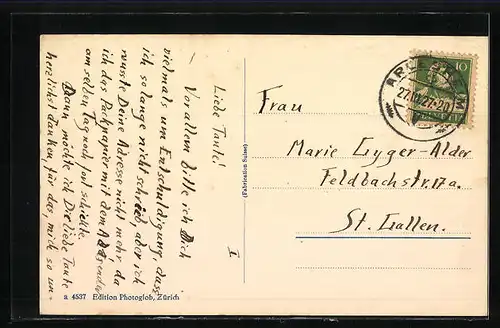 I
Liebe Tante!
— Vor allem bitte ich Dich
viedmals um Entschuldigung, dass
ich so lange nicht schrieb, aber ich
wusste Deine Adresse nicht mehr da
ich das Packpapier mit dem Absender
am selben Tag noch fort schickte.
Dann möchte ich Dir liebe Tante
herzlichst danken, für das, mich so un-
a 4537 Edition Photoglob, Zürich
(Fabrication Suisse)
10
27. 27.-20
Frau
Marie Gyger-Alder
Feldbachstr. 17a.
St. Gallen.